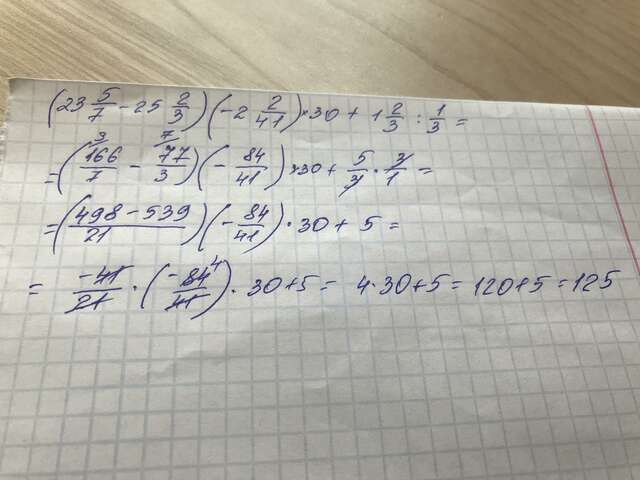 (23 5/7 - 25 2/3)(-2 2/41)×30 + 1 2/3 : 1/3 =
= (166/7 ³ - 77/3 ⁷)(-84/41)×30 + 5/3 · 3/1 =
= (498 - 539 / 21)(-84/41) · 30 + 5 =
= -41/21 · (-84 ⁴/41) · 30 + 5 = 4 · 30 + 5 = 120 + 5 = 125